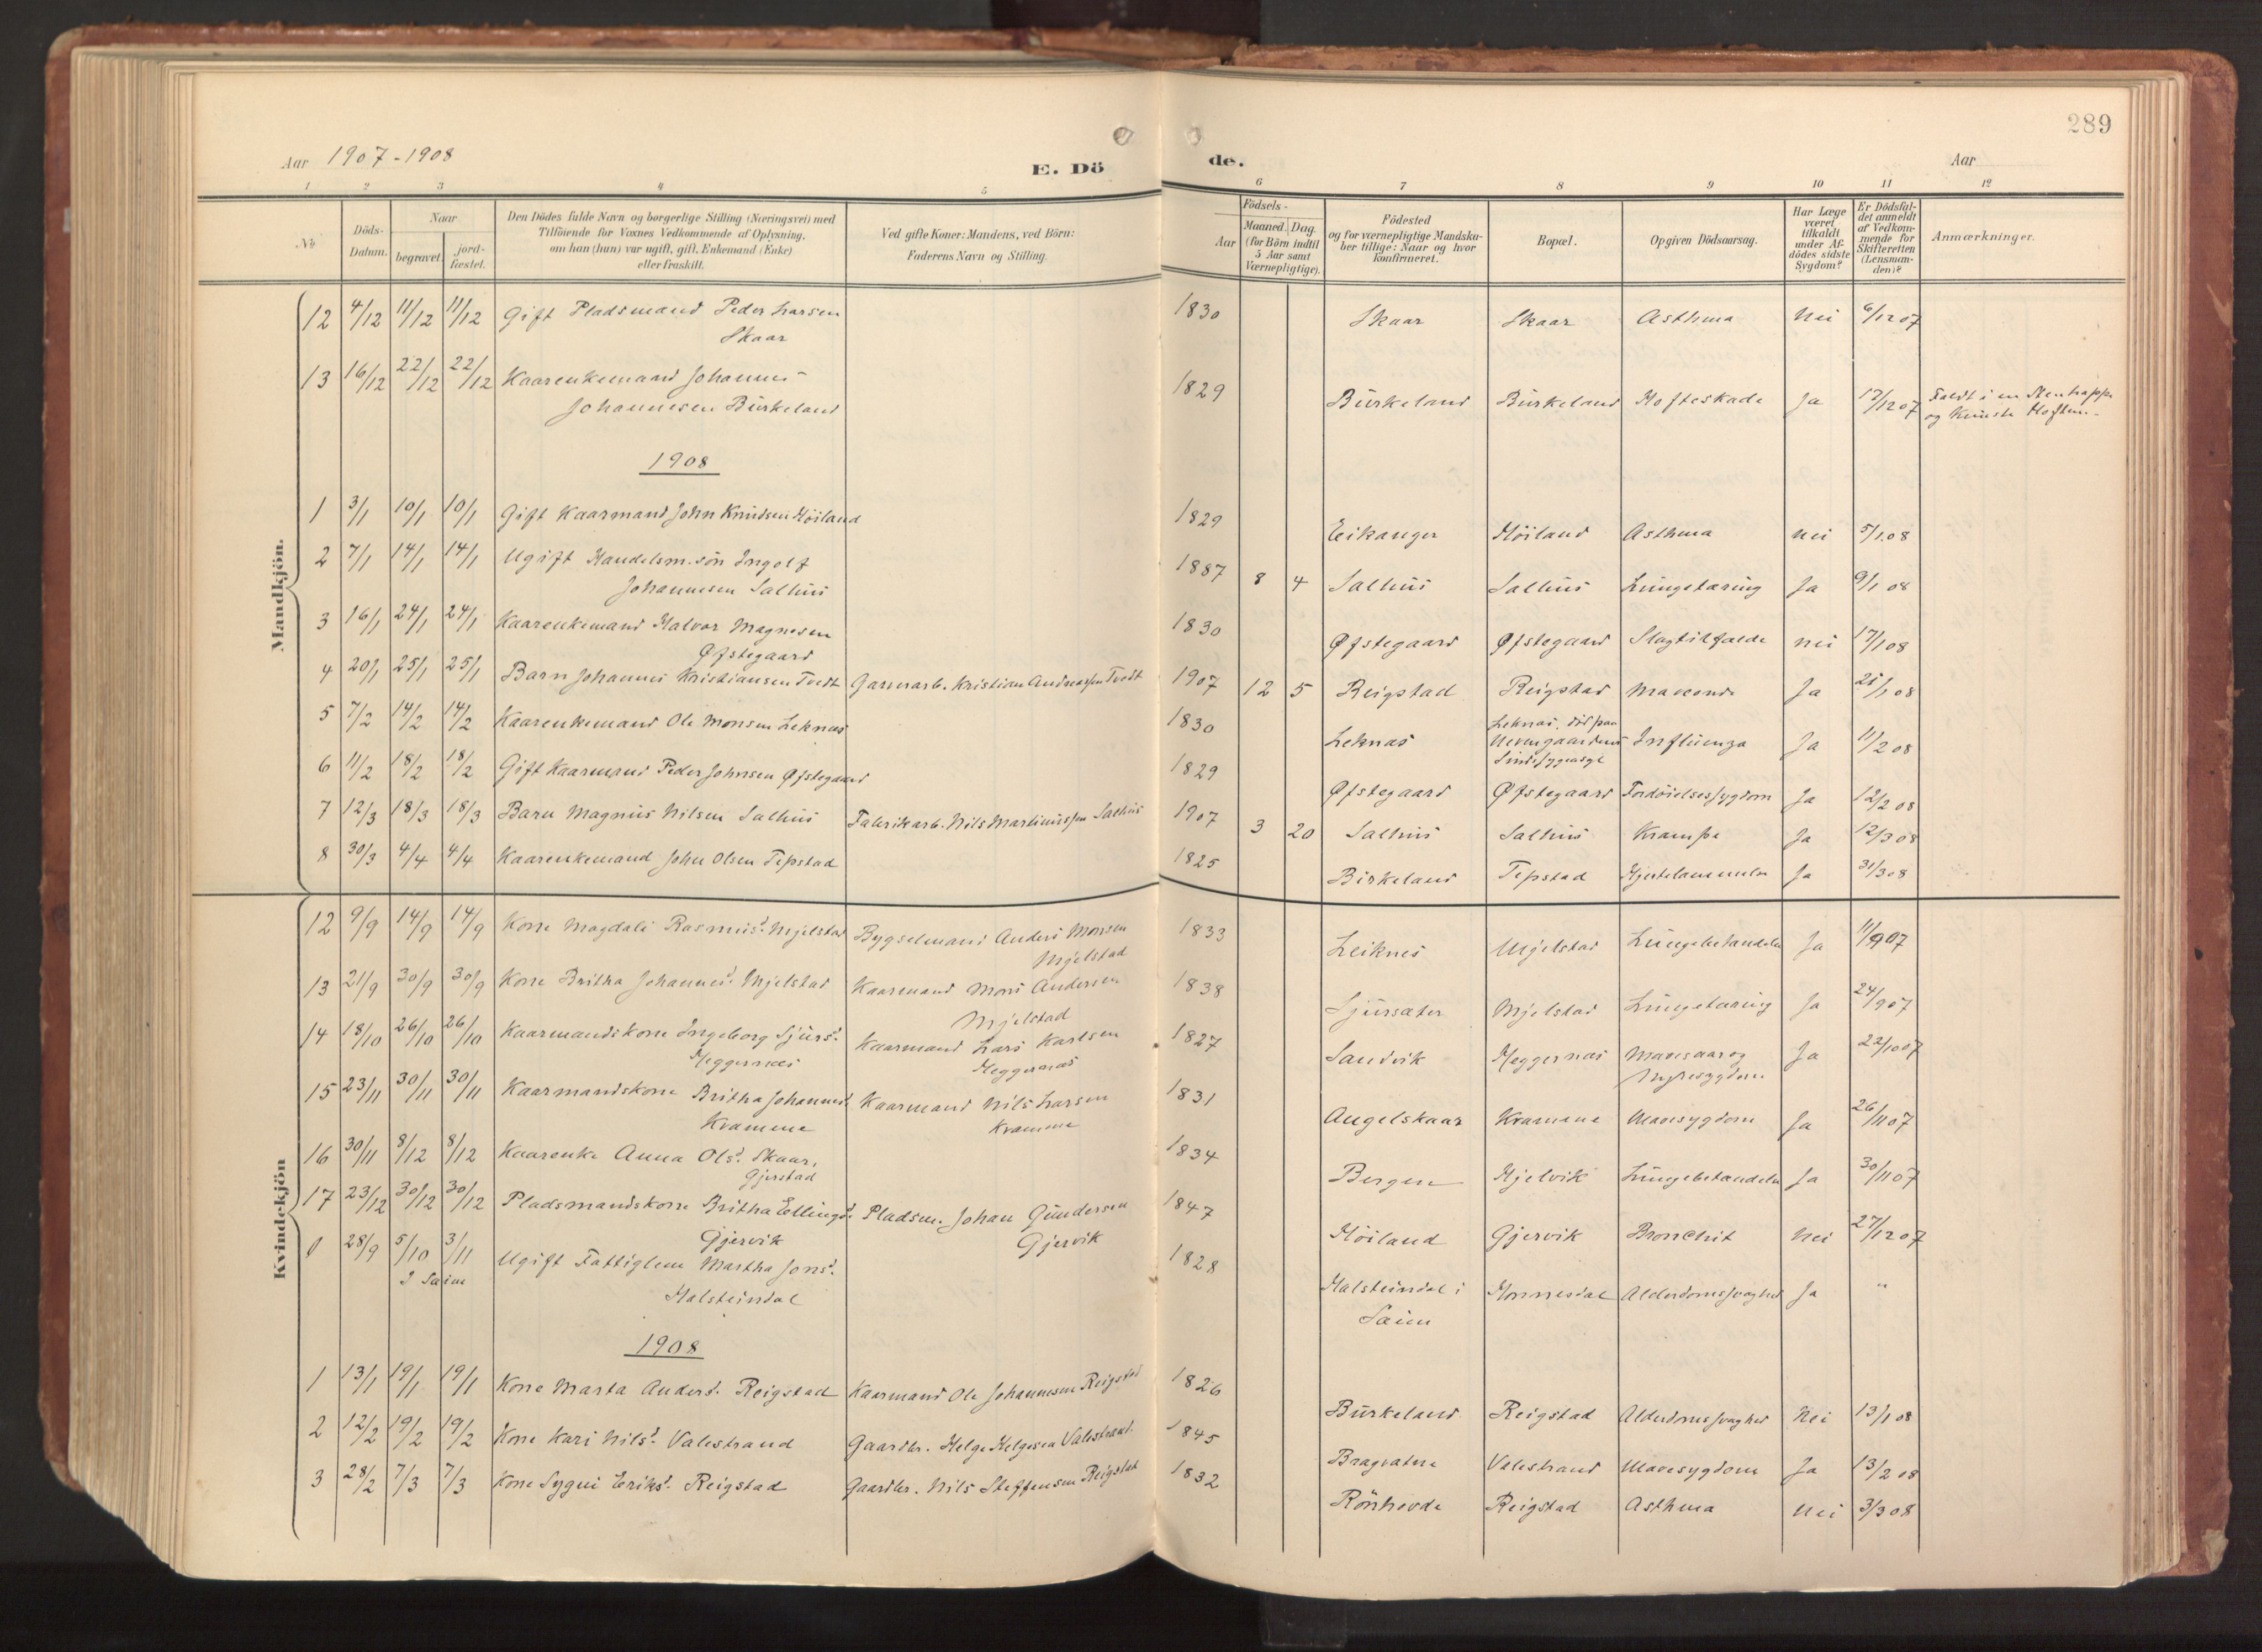 289
Aar 1907-1908
E. Dö
de.
Aar
1 2 3 4 5 6 7 8 9 10 11 12
№
Döds-
Datum.
Naar
begravet.
jord-
fæstet.
Den Dödes fulde Navn og borgerlige Stilling (Næringsvei) med
Tilföiende for Voxnes Vedkommende af Oplysning,
om han (hun) var ugift, gift, Enkemand (Enke)
eller fraskilt.
Ved gifte Koner: Mandens, ved Börn:
Faderens Navn og Stilling.
Födsels-
Aar
Maaned. Dag.
(for Börn indtil
5 Aar samt
Værnepligtige).
Födested
og for værnepligtige Mandska-
ber tillige: Naar og hvor
konfirmeret.
Bopæl.
Opgiven Dödsaarsag.
Har Læge
været
tilkaldt
under Af-
dödes sidste
Sygdom?
Er Dödsfal-
det anmeldt
af Vedkom-
mende for
Skifteretten
(Lensman-
den)?
Anmærkninger.
Mandkjön.
12 4/12 11/12 11/12 Gift Pladsmand Peder Larsen 1830 Skaar Skaar Asthma Nei 6/12 07
Skaar
13 16/12 22/12 22/12 Kaarenkemand Johannes 1829 Burkeland Burkeland Hofteskade Ja 17/12 07 Faldt i en Stentrappe
Johannesen Burkeland og Knuste Hoften.
1908
1 3/1 10/1 10/1 Gift Kaarmand John Knudsen Höiland 1829 Eikanger Höiland Asthma nei 5/1 08
2 7/1 14/1 14/1 Ugift Handelsm. sön Ingolf 1887 8 4 Salhus Salhus Lungetæring Ja 9/1 08
Johannesen Salhus
3 16/1 24/1 24/1 Kaarenkemand Halvor Magnesen 1830 Øfstegaard Øfstegaard Slagtilfælde nei 17/1 08
Øfstegaard
4 20/1 25/1 25/1 Barn Johannes Kristiansen Tvedt Garverarb. Kristian Andreassen Tvedt 1907 12 5 Reigstad Reigstad Maveonde Ja 25/1 08
5 7/2 14/2 14/2 Kaarenkemand Ole Monsen Leknæs 1830 Leknæs Leknæs, död paa Influenza Ja 11/2 08
Nevengaardens
Sindssygeasyl
6 11/2 18/2 18/2 Gift Kaarmand Peder Johnsen Øfstegaard 1829 Øfstegaard Øfstegaard Fordöielsessygdom Ja 12/2 08
7 12/3 18/3 18/3 Barn Magnus Nilsen Salhus Fabrikarb. Nils Martinussen Salhus 1907 3 20 Salhus Salhus Krampe Ja 12/3 08
8 30/3 4/4 4/4 Kaarenkemand John Olsen Tepstad 1825 Birkeland Tepstad Hjertelammelse Ja 31/3 08
Kvindekjön
12 9/9 14/9 14/9 Kone Magdali Rasmusd. Mjelstad Bygselmand Anders Monsen 1833 Leiknes Mjelstad Lungebetændelse Ja 11/9 07
Mjelstad
13 21/9 30/9 30/9 Kone Britha Johannesd. Mjelstad Kaarmand Mons Andersen 1838 Sjursæter Mjelstad Lungetæring Ja 24/9 07
Mjelstad
14 18/10 26/10 26/10 Kaarmandskone Ingeborg Sjursd. Kaarmand Lars Karlsen 1827 Sandvik Heggernæs Mavesaar og Ja 22/10 07
Heggernæs Heggernæs Nyresygdom
15 23/11 30/11 30/11 Kaarmandskone Britha Johannesd. Kaarmand Nils Larsen 1831 Angelskaar Kramme Mavesygdom Ja 26/11 07
Kramme Kramme
16 30/11 8/12 8/12 Kaarenke Anna Olsd. Skaar, 1834 Bergen Hjelvik Lungebetændelse Ja 30/11 07
Gjerstad
17 23/12 30/12 30/12 Pladsmandskone Britha Ellingsd. Pladsm. Johan Gundersen 1847 Höiland Gjervik Bronchit Nei 27/12 07
Gjervik Gjervik
28/9 5/10 3/11 Ugift Fattiglem Martha Jonsd. 1828 Halsteindal i Honnesdal Alderdomssvaghed Ja "
I Sæim Halsteindal Sæim
1908
1 13/1 19/1 19/1 Kone Marta Andersd. Reigstad Kaarmand Ole Johannesen Reigstad 1826 Burkeland Reigstad Alderdomssvaghed Nei 13/1 08
2 12/2 19/2 19/2 Kone Kari Nilsd. Valestrand Gaardbr. Helge Helgesen Valestrand. 1845 Bragvatne Valestrand Mavesygdom Ja 13/2 08
3 28/2 7/3 7/3 Kone Sygni Eriksd. Reigstad Gaardbr. Nils Steffensen Reigstad 1832 Rönhovde Reigstad Asthma Nei 3/3 08